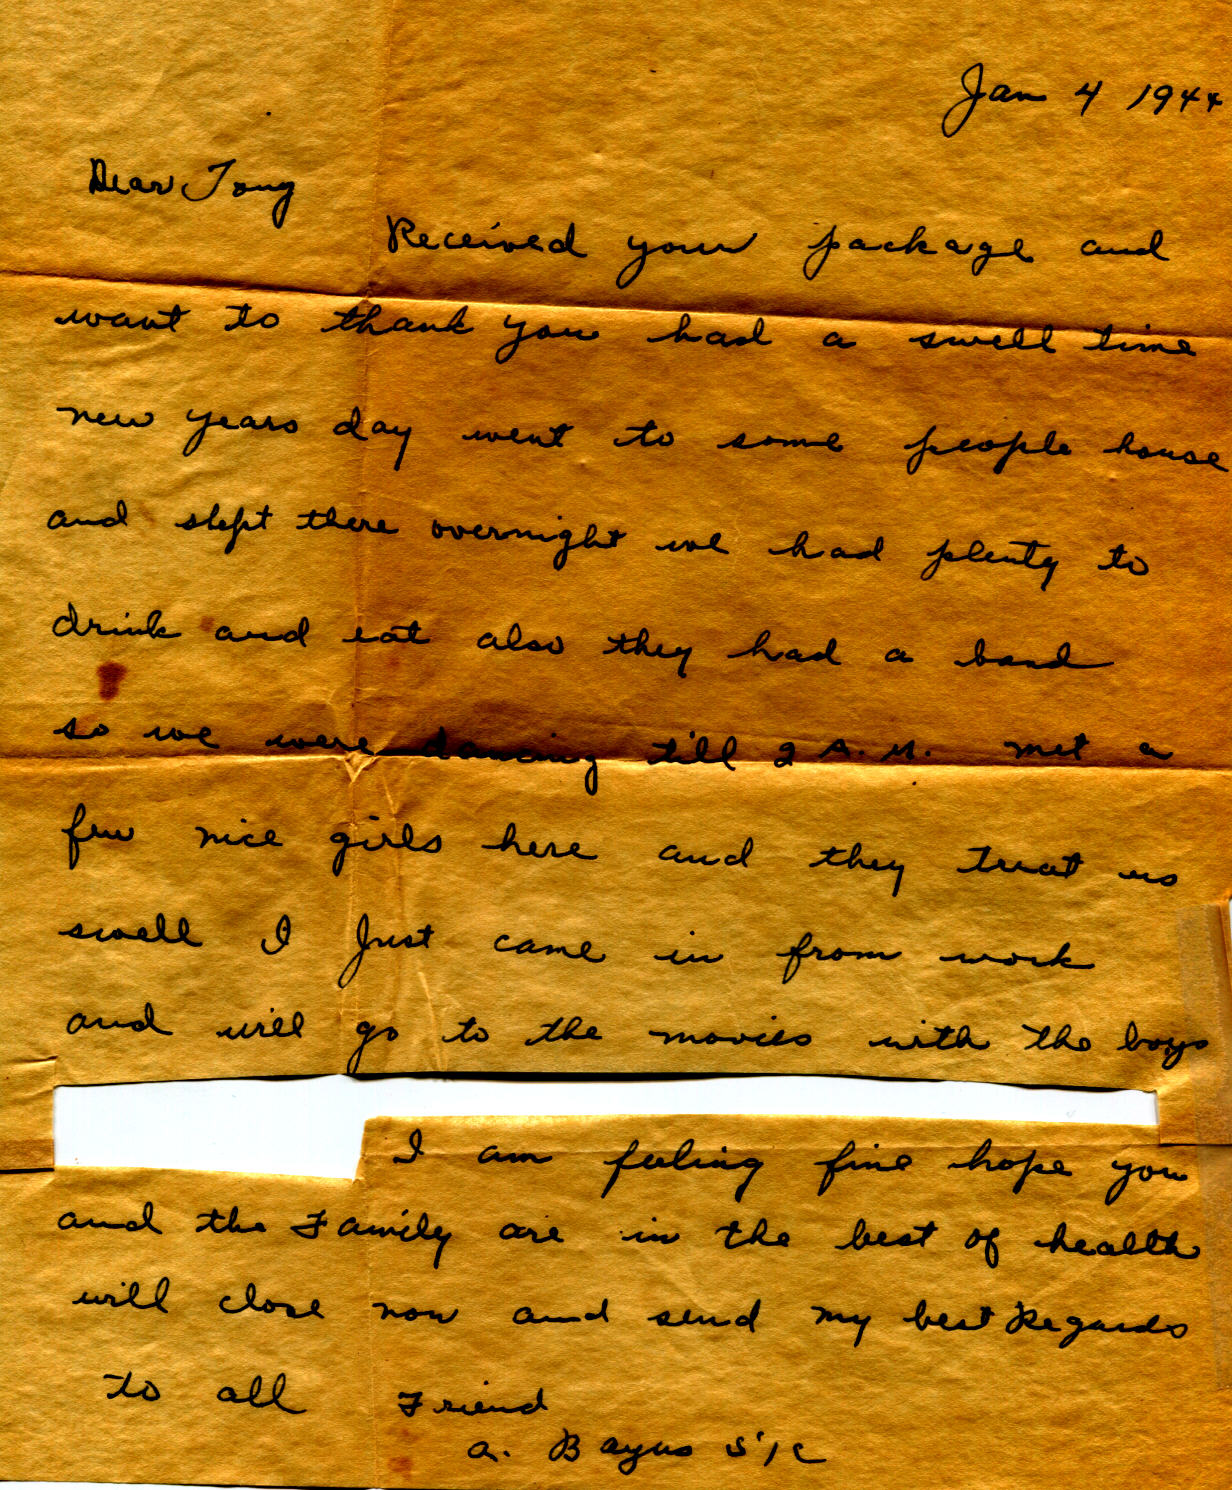 Jan 4 1944
Dear Tony
Received your package and
want to thank you had a swell time
new years day went to some people house
and slept there overnight we had plenty to
drink and eat also they had a band
so we were dancing till 2 A.M. met a
few nice girls here and they treat us
swell I Just came in from work
and will go to the movies with the boys
I am feeling fine hope you
and the Family are in the best of health
will close now and send my best Regards
to all Friend
A. Bayus S 1/C